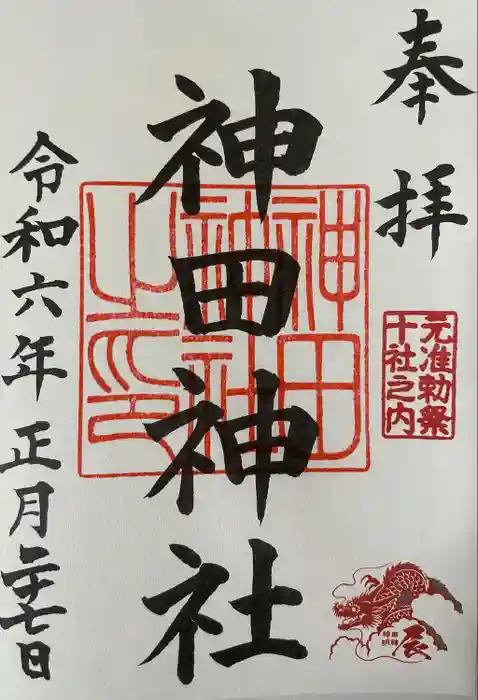 奉拝
元准勅祭
十社之内
神田神社
神田
神社
之印
令和六年正月二十七日
辰